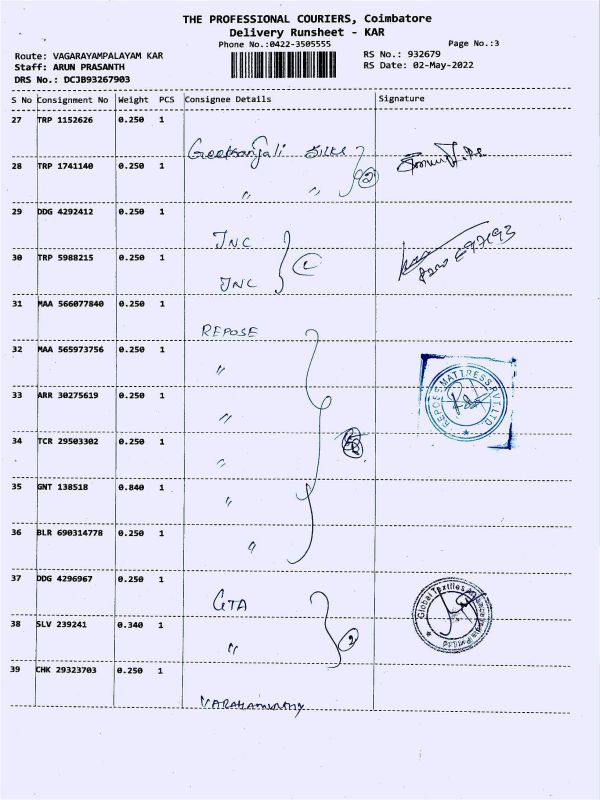 THE PROFESSIONAL COURIERS, Coimbatore
Delivery Runsheet - KAR
Phone No.:0422-3505555
Page No.:3
Route: VAGARAYAMPALAYAM KAR
RS No.: 932679
Staff: ARUN PRASANTH
RS Date: 02-May-2022
DRS No.: DCJB93267903
S No Consignment No Weight PCS Consignee Details Signature
27 TRP 1152626 0.250 1
Geethanjali SILKS
28 TRP 1741140 0.250 1
" " 2
29 DDG 4292412 0.250 1
JNC
30 TRP 5988215 0.250 1
JNC
31 MAA 566077840 0.250 1
REPOSE
32 MAA 565973756 0.250 1
"
33 ARR 30275619 0.250 1
"
REPOSE MATTRESS PVT.LTD
34 TCR 29503302 0.250 1
"
35 GNT 138518 0.840 1
"
36 BLR 690314778 0.250 1
"
37 DDG 4296967 0.250 1
GTA
Global Textiles
38 SLV 239241 0.340 1
" 2
39 CHK 29323703 0.250 1